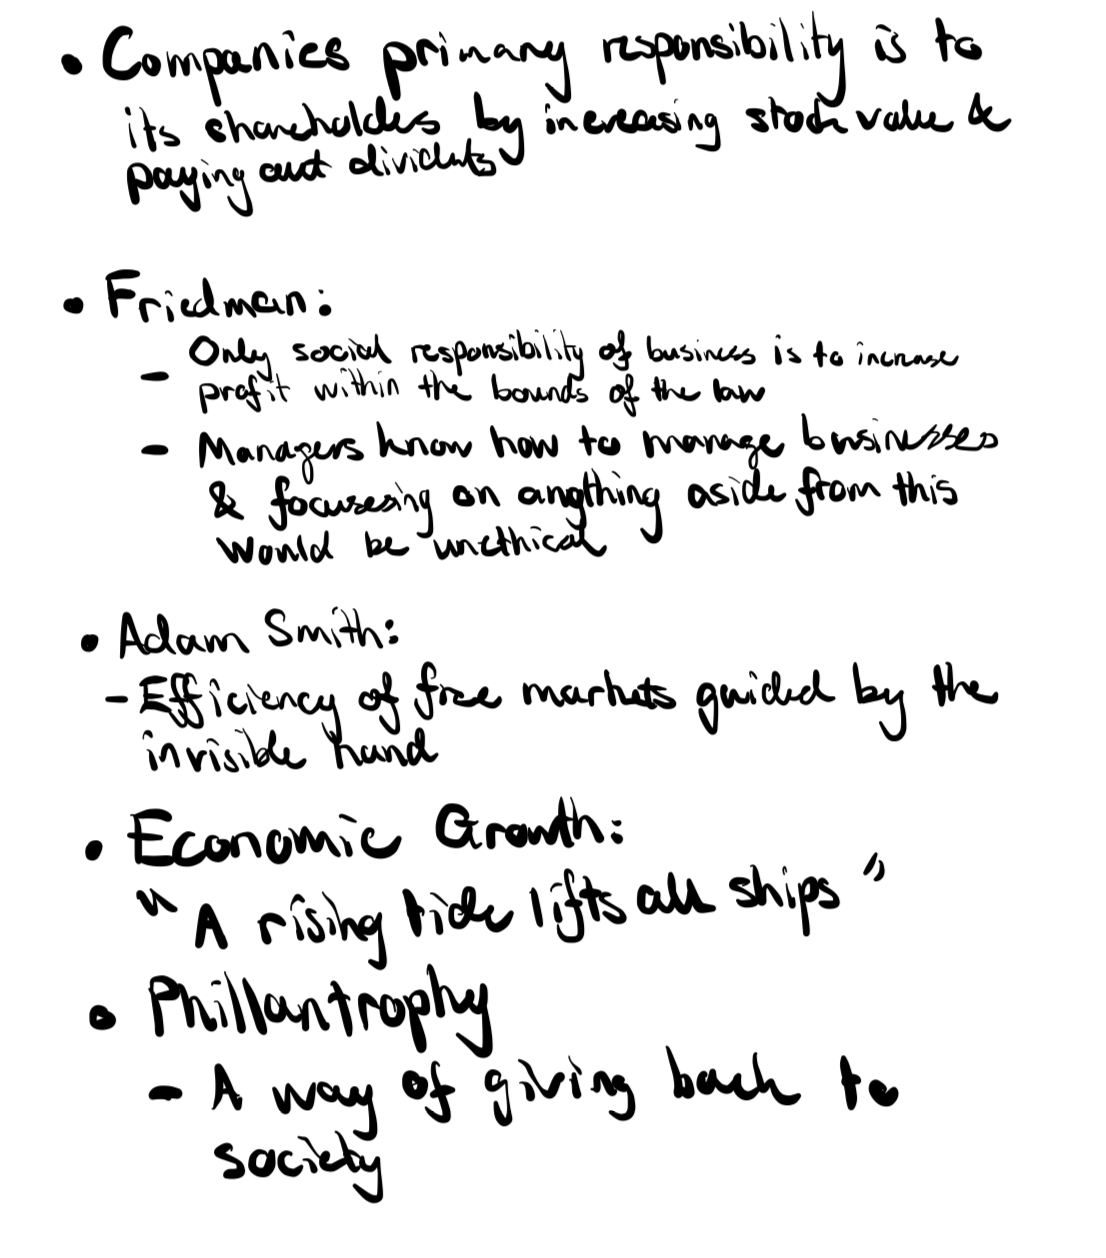 • Companies primary responsibility is to
its shareholdes by increasing stock value &
paying out dividents
• Friedman:
- Only social responsibility of business is to increase
profit within the bounds of the law
- Managers know how to manage businesses
& focuseing on angthing aside from this
would be unethical
• Adam Smith:
- Efficiency of free markets guided by the
invisible hand
• Economic Growth:
"A rising tide lifts all ships"
• Phillantrophy
- A way of giving back to
society